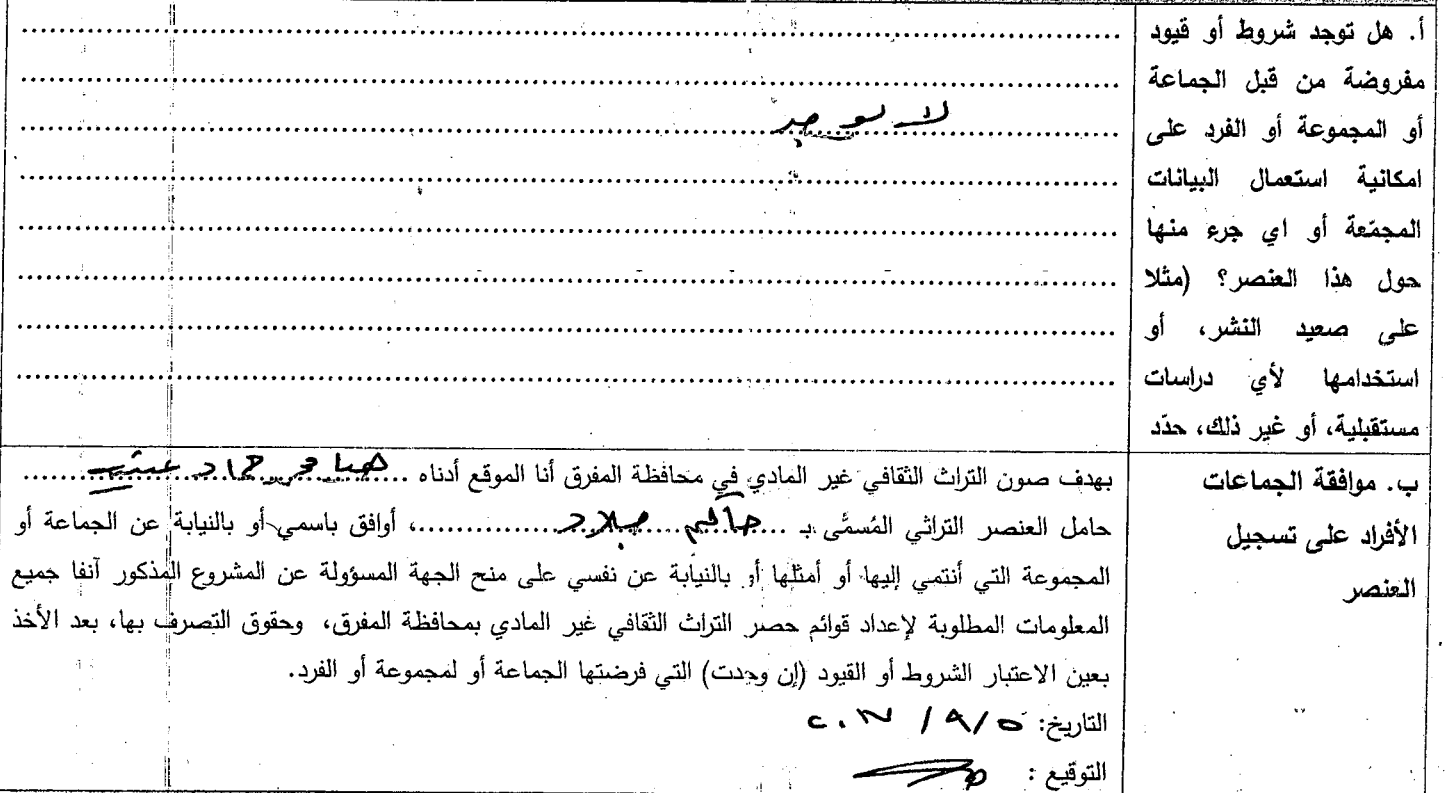 أ. هل توجد شروط أو قيود
مفروضة من قبل الجماعة
أو المجموعة أو الفرد على
امكانية استعمال البيانات
المجمّعة أو اي جرء منها
حول هذا العنصر؟ (مثلا
على صعيد النشر، أو
استخدامها لأي دراسات
مستقبلية، أو غير ذلك، حدّد
لا يوجد
ب. موافقة الجماعات
الأفراد على تسجيل
العنصر
بهدف صون التراث الثقافي غير المادي في محافظة المفرق أنا الموقع أدناه ........ حماد ........
حامل العنصر التراثي المُسمَّى بـ ................، أوافق باسمي أو بالنيابة عن الجماعة أو
المجموعة التي أنتمي إليها أو أمثلها أو بالنيابة عن نفسي على منح الجهة المسؤولة عن المشروع المذكور آنفا جميع
المعلومات المطلوبة لإعداد قوائم حصر التراث الثقافي غير المادي بمحافظة المفرق، وحقوق التصرف بها، بعد الأخذ
بعين الاعتبار الشروط أو القيود (إن وجدت) التي فرضتها الجماعة أو لمجموعة أو الفرد.
التاريخ: ٥/٩/
التوقيع :